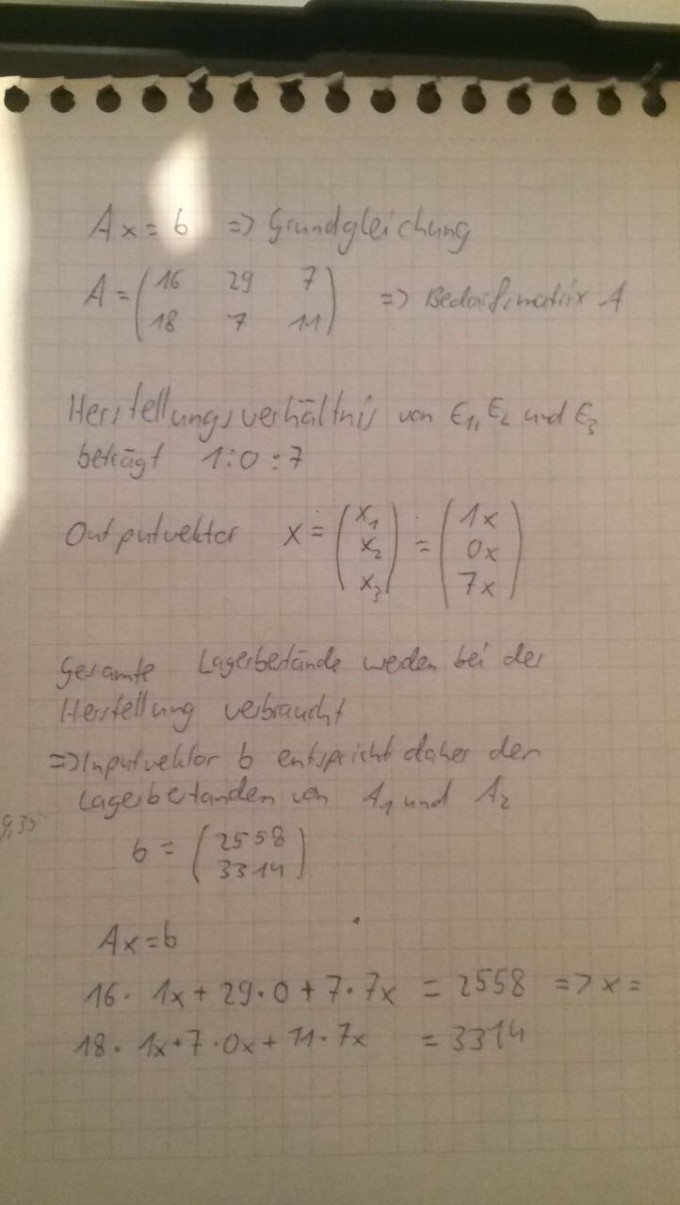 Ax = b => Grundgleichung
A = (16 29 7
18 7 11) => Bedarfsmatrix A
Herstellungsverhältnis von E1, E2 und E3
beträgt 1:0:7
Outputvektor x = (x1 x2 x3) = (1x 0x 7x)
Gesamte Lagerbestände werden bei der
Herstellung verbraucht
=> Inputvektor b entspricht daher den
Lagerbestanden von A1 und A2
b = (2558
3314)
Ax = b
16 · 1x + 29 · 0 + 7 · 7x = 2558 => x =
18 · 1x + 7 · 0x + 11 · 7x = 3314